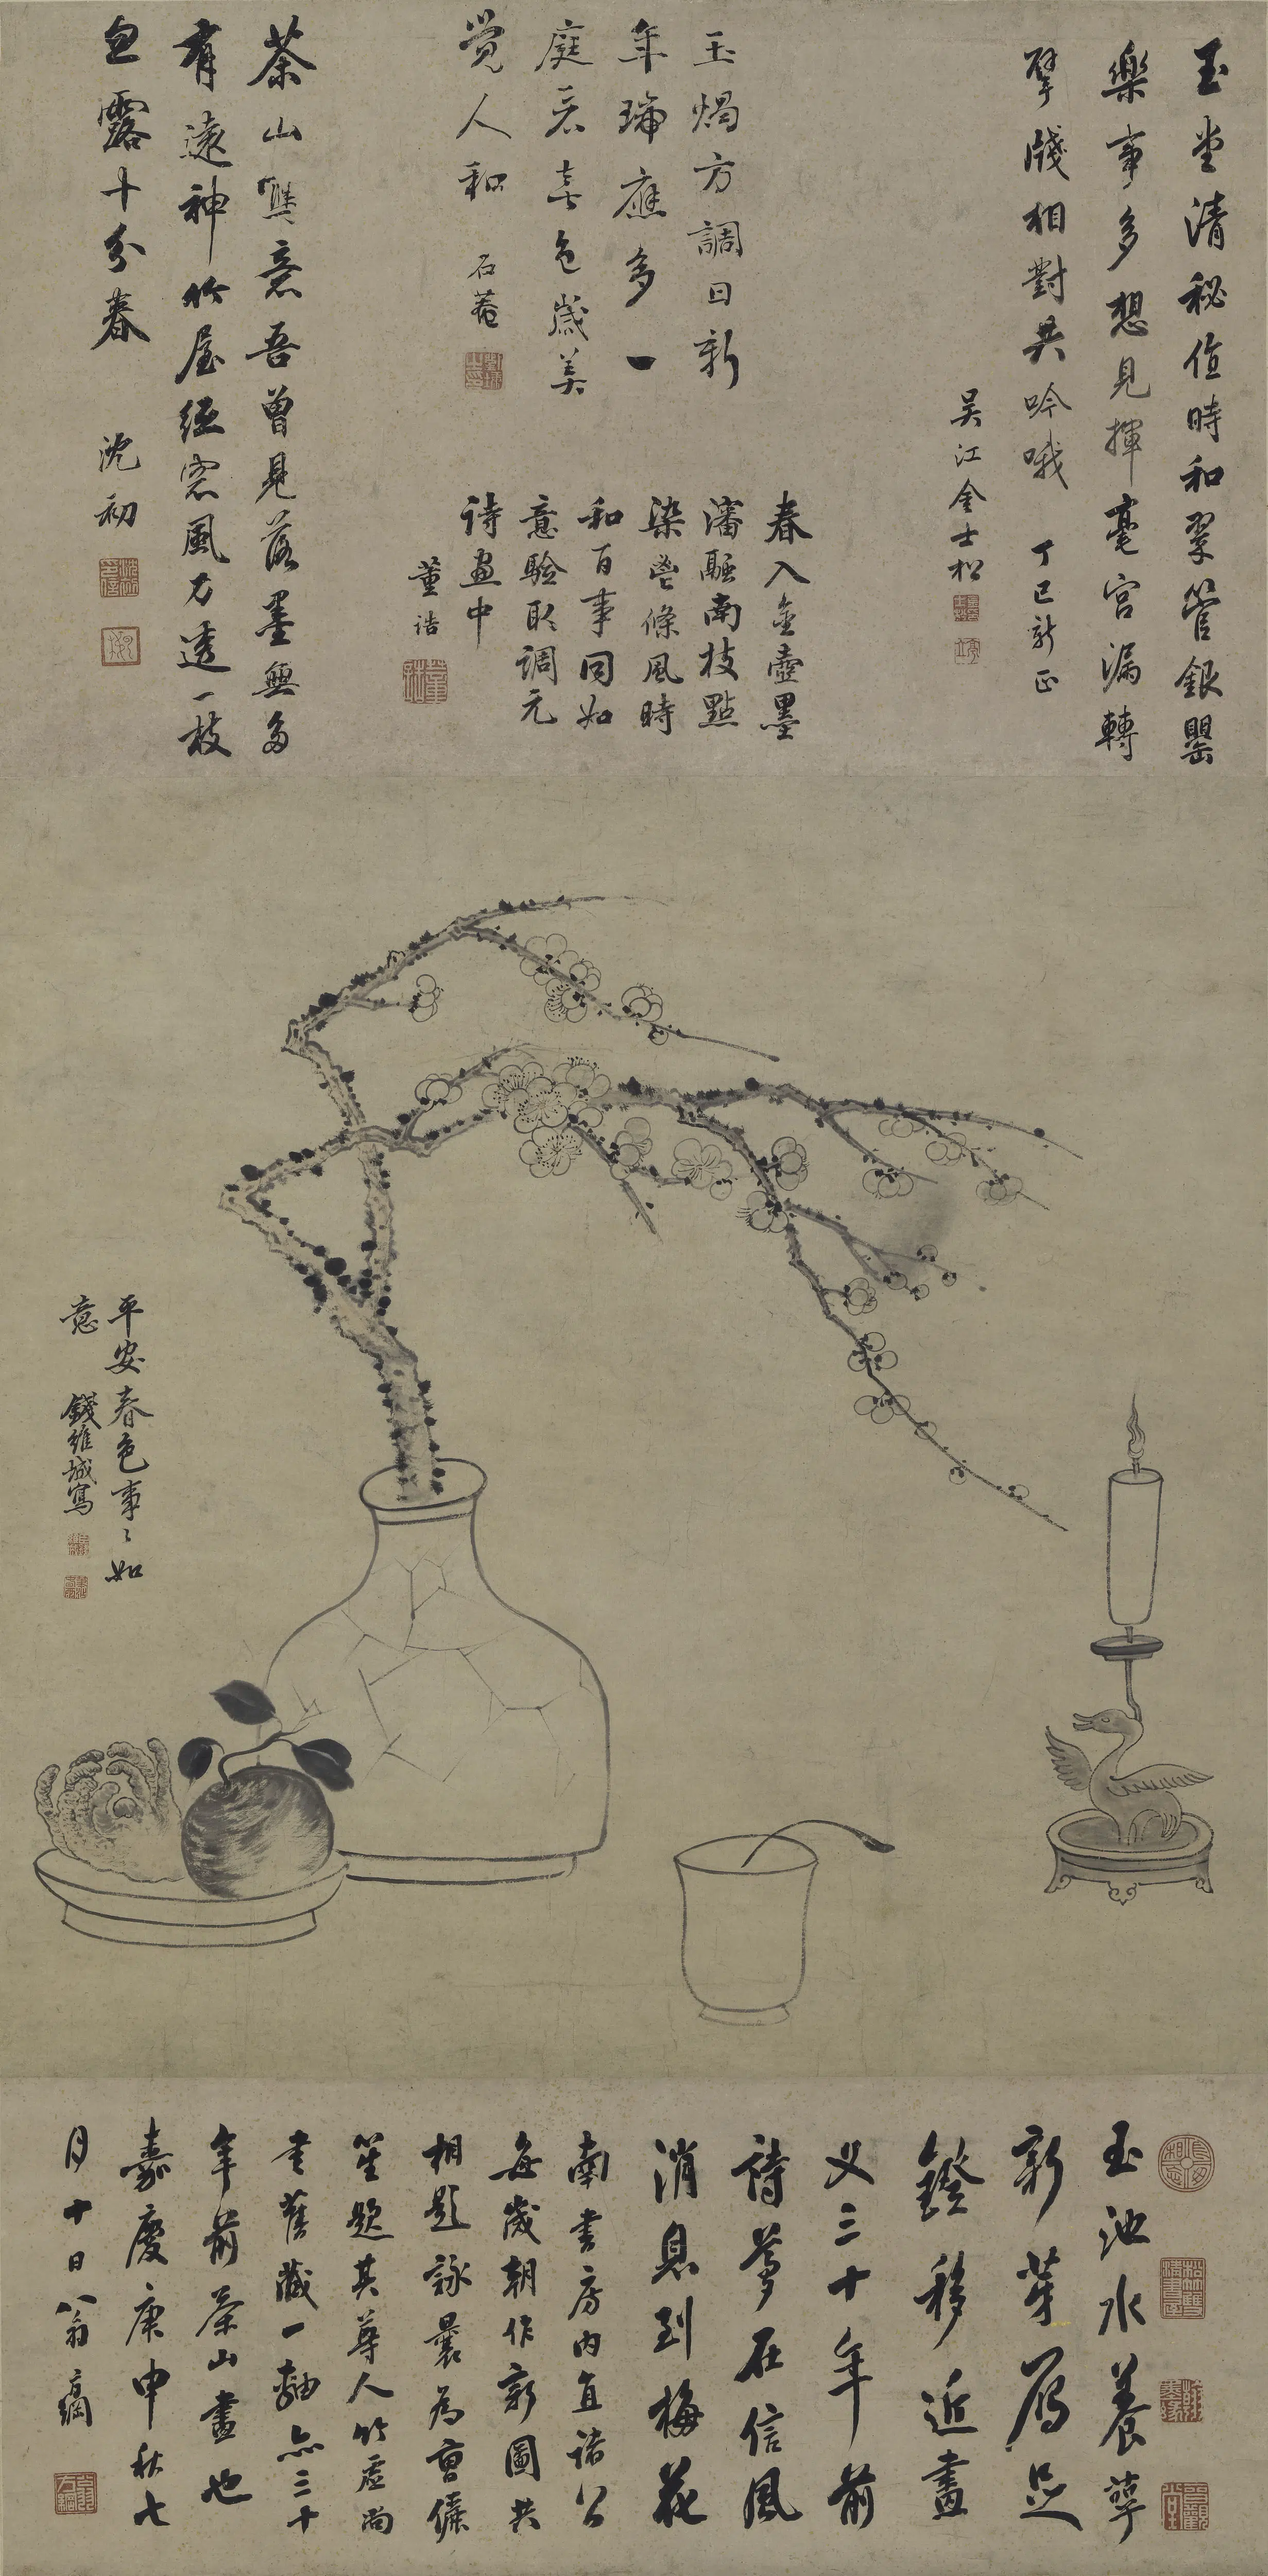 玉堂清秘值時和翠管銀罌
樂事多想見揮毫宮漏轉
擘牋相對共吟哦 丁巳新正
吳江金士松
玉燭方調日新
年瑞應多一
庭春喜色歲美
覺人和 石菴
春入金壺墨
瀋融南枝點
染鬯條風時
和百事同如
意驗取調元
詩畫中
董誥
茶山畫意吾曾見落墨無多
有遠神竹屋紙窓風力透一枝
白露十分春 沈初
平安春色事〻如
意 錢維城寫
玉池水養蕚
新芽雁足
鐙移近畫
叉三十年前
詩夢在信風
消息到梅花
南書房內直諸公
每歲朝作新圖共
相題詠曩為曹儷
笙題其尊人竹虛尚
書舊藏一軸亦三十
年前茶山畫也
嘉慶庚申秋七
月十日 翁方綱